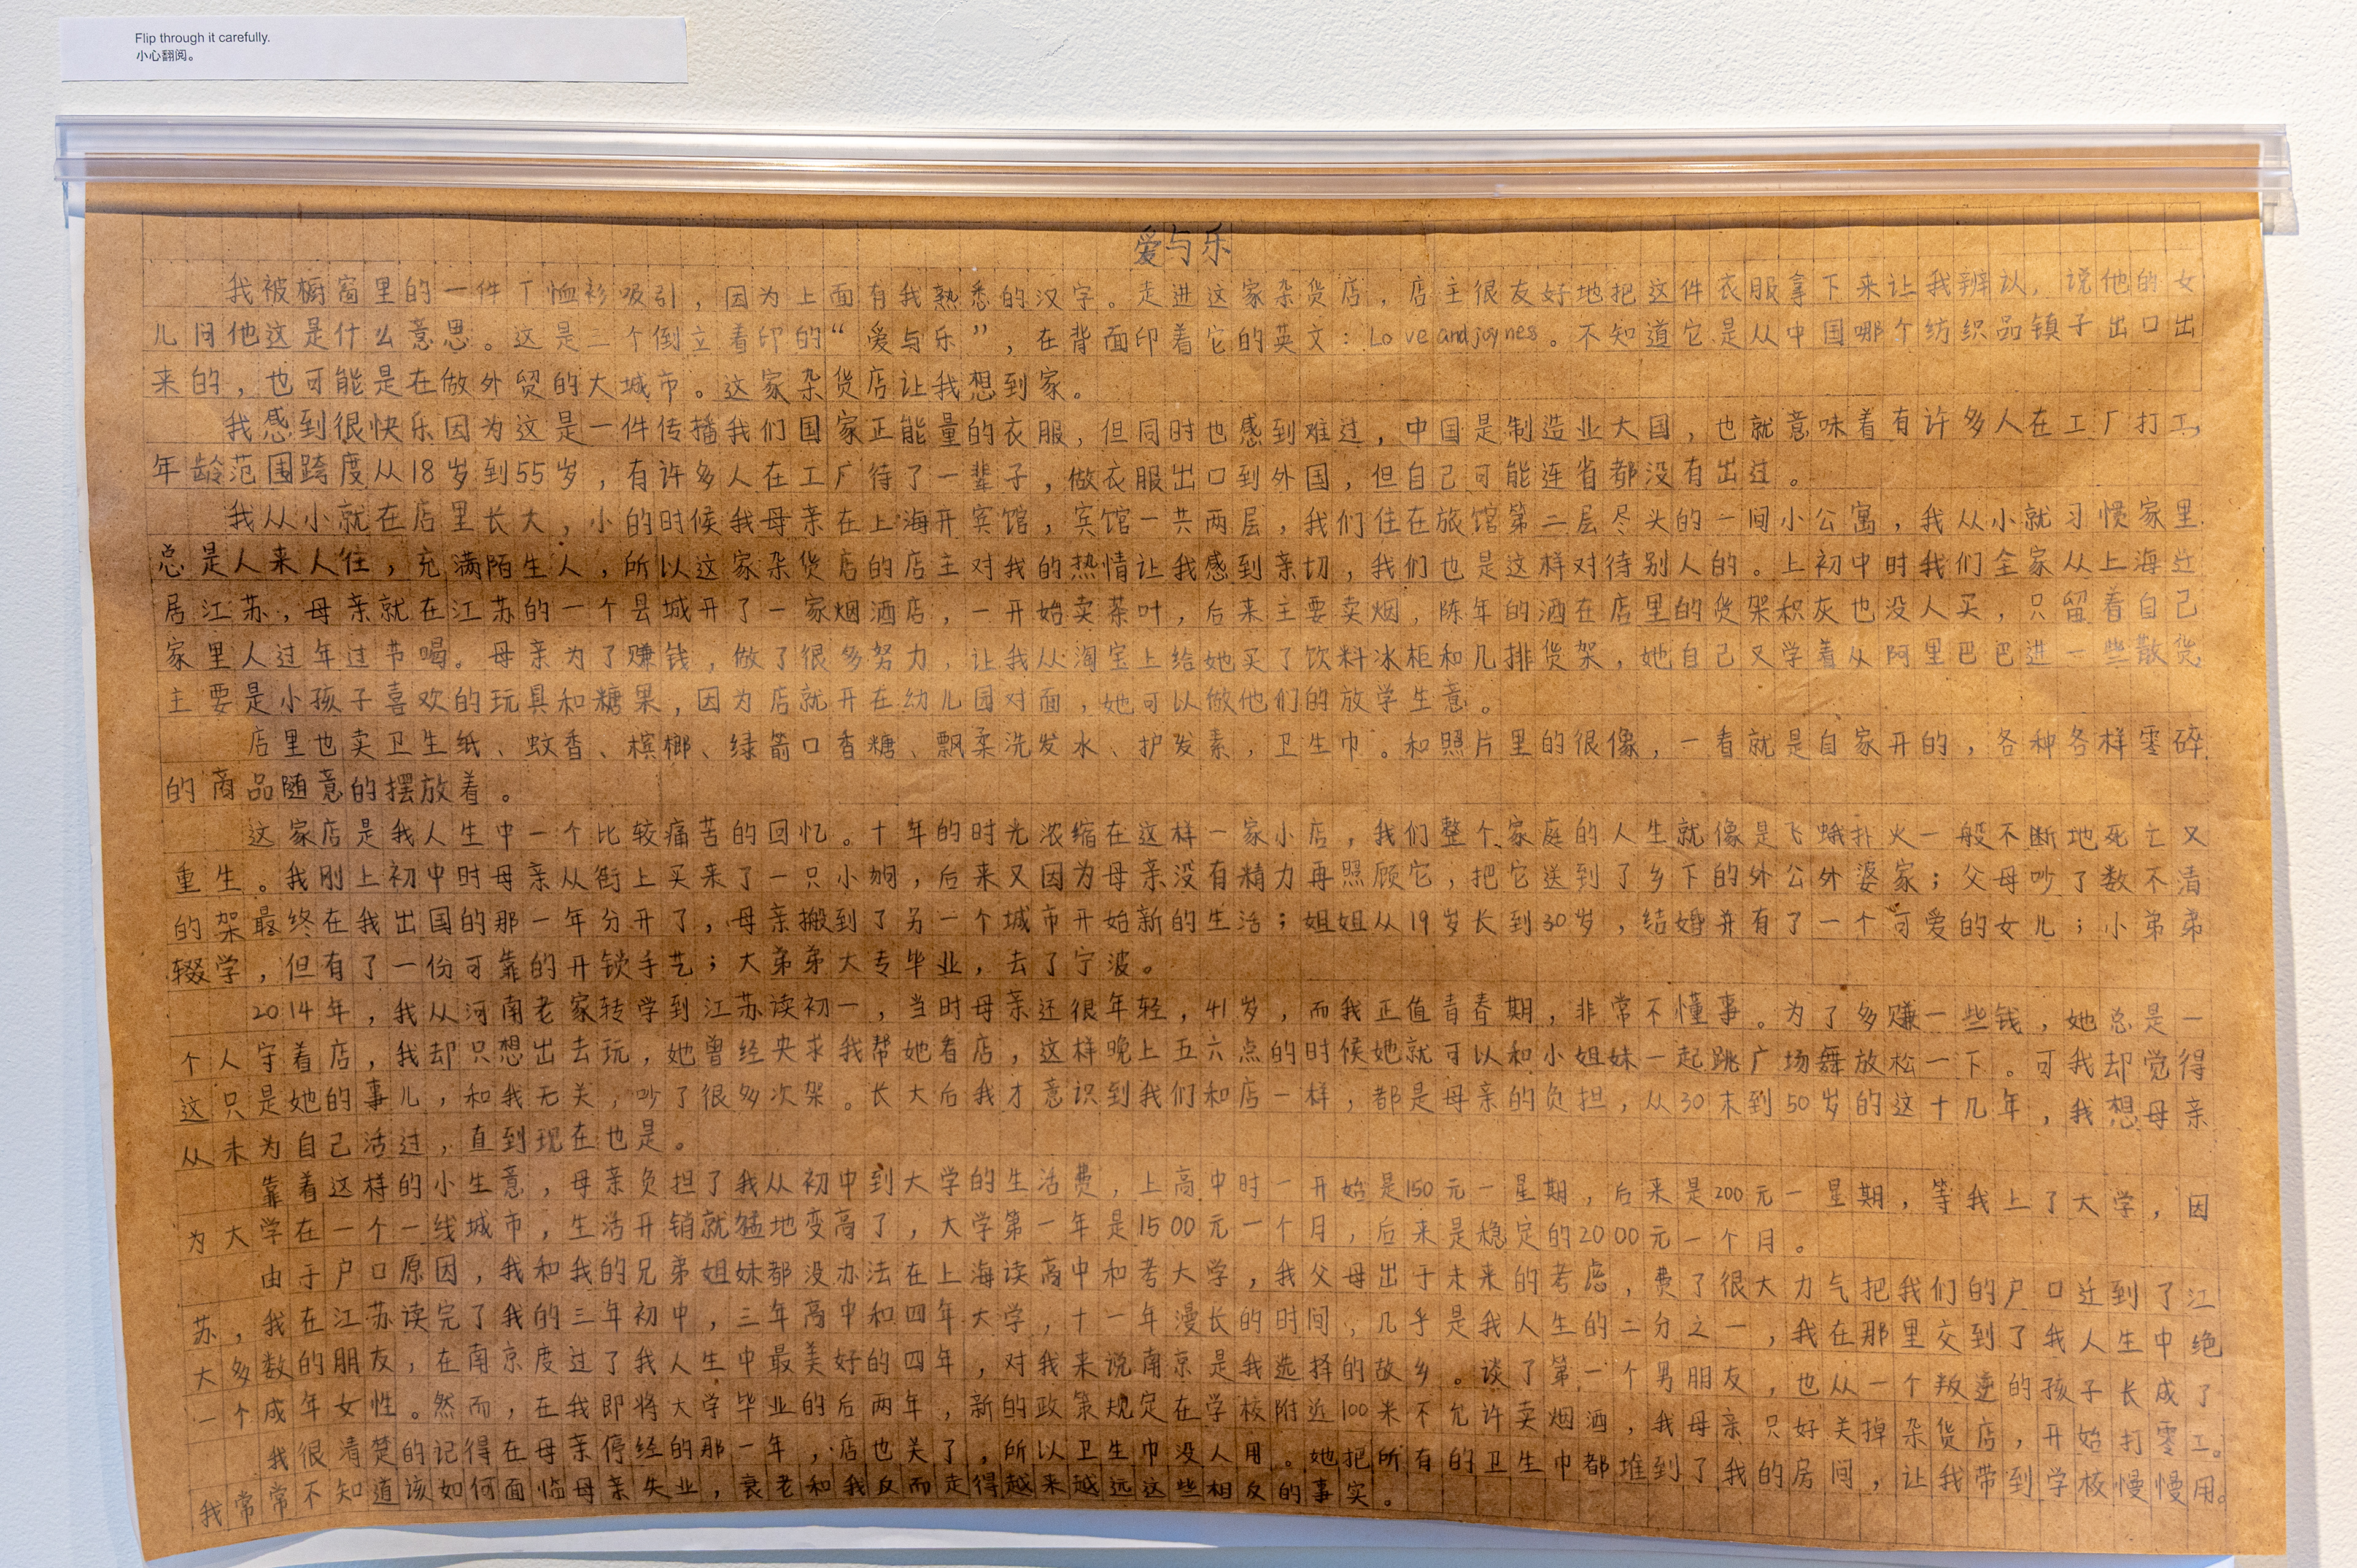 Flip through it carefully.
小心翻阅。
爱与乐
我被橱窗里的一件T恤衫吸引，因为上面有我熟悉的汉字。走进这家杂货店，店主很友好地把这件衣服拿下来让我辨认，说他的女
儿问他这是什么意思。这是三个倒立着印的“爱与乐”，在背面印着它的英文：Love and joynes。不知道它是从中国哪个纺织品镇子出口出
来的，也可能是在做外贸的大城市。这家杂货店让我想到家。
我感到很快乐因为这是一件传播我们国家正能量的衣服，但同时也感到难过，中国是制造业大国，也就意味着有许多人在工厂打工，
年龄范围跨度从18岁到55岁，有许多人在工厂待了一辈子，做衣服出口到外国，但自己可能连省都没有出过。
我从小就在店里长大，小的时候我母亲在上海开宾馆，宾馆一共两层，我们住在旅馆第二层尽头的一间小公寓，我从小就习惯家里
总是人来人往，充满陌生人，所以这家杂货店的店主对我的热情让我感到亲切，我们也是这样对待别人的。上初中时我们全家从上海迁
居江苏，母亲就在江苏的一个县城开了一家烟酒店，一开始卖茶叶，后来主要卖烟，陈年的酒在店里的货架积灰也没人买，只留着自己
家里人过年过节喝。母亲为了赚钱，做了很多努力，让我从淘宝上给她买了饮料冰柜和几排货架，她自己又学着从阿里巴巴进一些散货
主要是小孩子喜欢的玩具和糖果，因为店就开在幼儿园对面，她可以做他们的放学生意。
店里也卖卫生纸、蚊香、槟榔、绿箭口香糖、飘柔洗发水、护发素，卫生巾。和照片里的很像，一看就是自家开的，各种各样零碎
的商品随意的摆放着。
这家店是我人生中一个比较痛苦的回忆。十年的时光浓缩在这样一家小店，我们整个家庭的人生就像是飞蛾扑火一般不断地死亡又
重生。我刚上初中时母亲从街上买来了一只小狗，后来又因为母亲没有精力再照顾它，把它送到了乡下的外公外婆家；父母吵了数不清
的架最终在我出国的那一年分开了，母亲搬到了另一个城市开始新的生活；姐姐从19岁长到30岁，结婚并有了一个可爱的女儿；小弟弟
辍学，但有了一份可靠的开锁手艺；大弟弟大专毕业，去了宁波。
2014年，我从河南老家转学到江苏读初一，当时母亲还很年轻，41岁，而我正值青春期，非常不懂事。为了多赚一些钱，她总是一
个人守着店，我却只想出去玩，她曾经央求我帮她看店，这样晚上五六点的时候她就可以和小姐妹一起跳广场舞放松一下。可我却觉得
这只是她的事儿，和我无关，吵了很多次架。长大后我才意识到我们和店一样，都是母亲的负担，从30末到50岁的这十几年，我想母亲
从未为自己活过，直到现在也是。
靠着这样的小生意，母亲负担了我从初中到大学的生活费，上高中时一开始是150元一星期，后来是200元一星期，等我上了大学，因
为大学在一个一线城市，生活开销就猛地变高了，大学第一年是1500元一个月，后来是稳定的2000元一个月。
由于户口原因，我和我的兄弟姐妹都没办法在上海读高中和考大学，我父母出于未来的考虑，费了很大力气把我们的户口迁到了江
苏，我在江苏读完了我的三年初中，三年高中和四年大学，十一年漫长的时间，几乎是我人生的二分之一，我在那里交到了我人生中绝
大多数的朋友，在南京度过了我人生中最美好的四年，对我来说南京是我选择的故乡。谈了第一个男朋友，也从一个叛逆的孩子长成了
一个成年女性。然而，在我即将大学毕业的后两年，新的政策规定在学校附近100米不允许卖烟酒，我母亲只好关掉杂货店，开始打零工。
我很清楚的记得在母亲停经的那一年，店也关了，所以卫生巾没人用。她把所有的卫生巾都堆到了我的房间，让我带到学校慢慢用。
我常常不知道该如何面临母亲失业，衰老和我反而走得越来越远这些相反的事实。